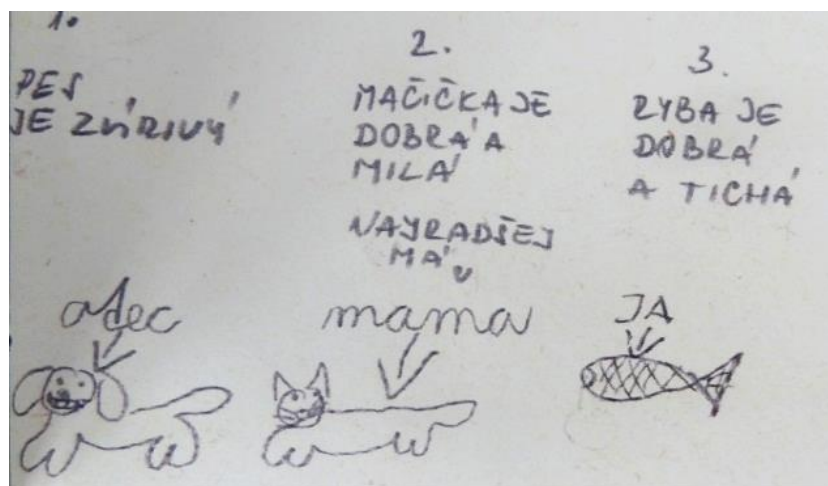 1.
PES
JE ZÚRIVÝ
otec
2.
MAČIČKA JE
DOBRÁ A
MILÁ
NAJRADŠEJ
MÁ
mama
3.
RYBA JE
DOBRÁ
A TICHÁ
JA